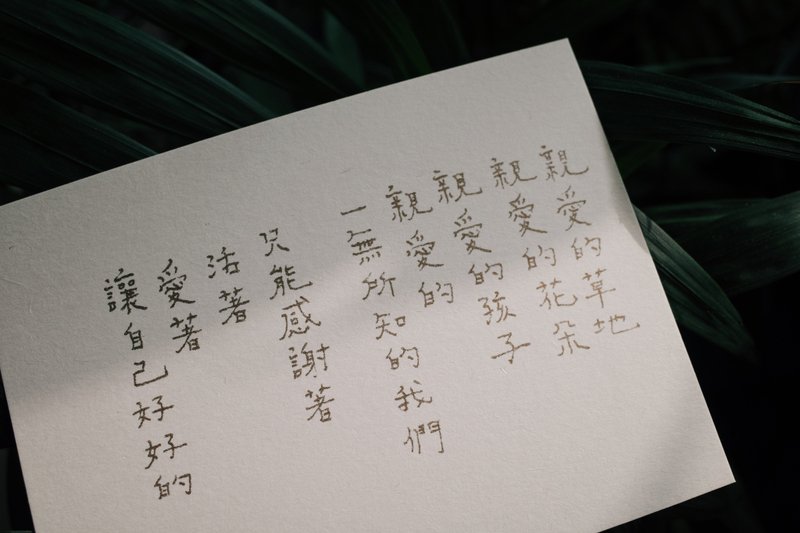 親愛的草地
親愛的花朵
親愛的孩子
親愛的
一無所知的我們
只能感謝著
活著
愛著
讓自己好好的